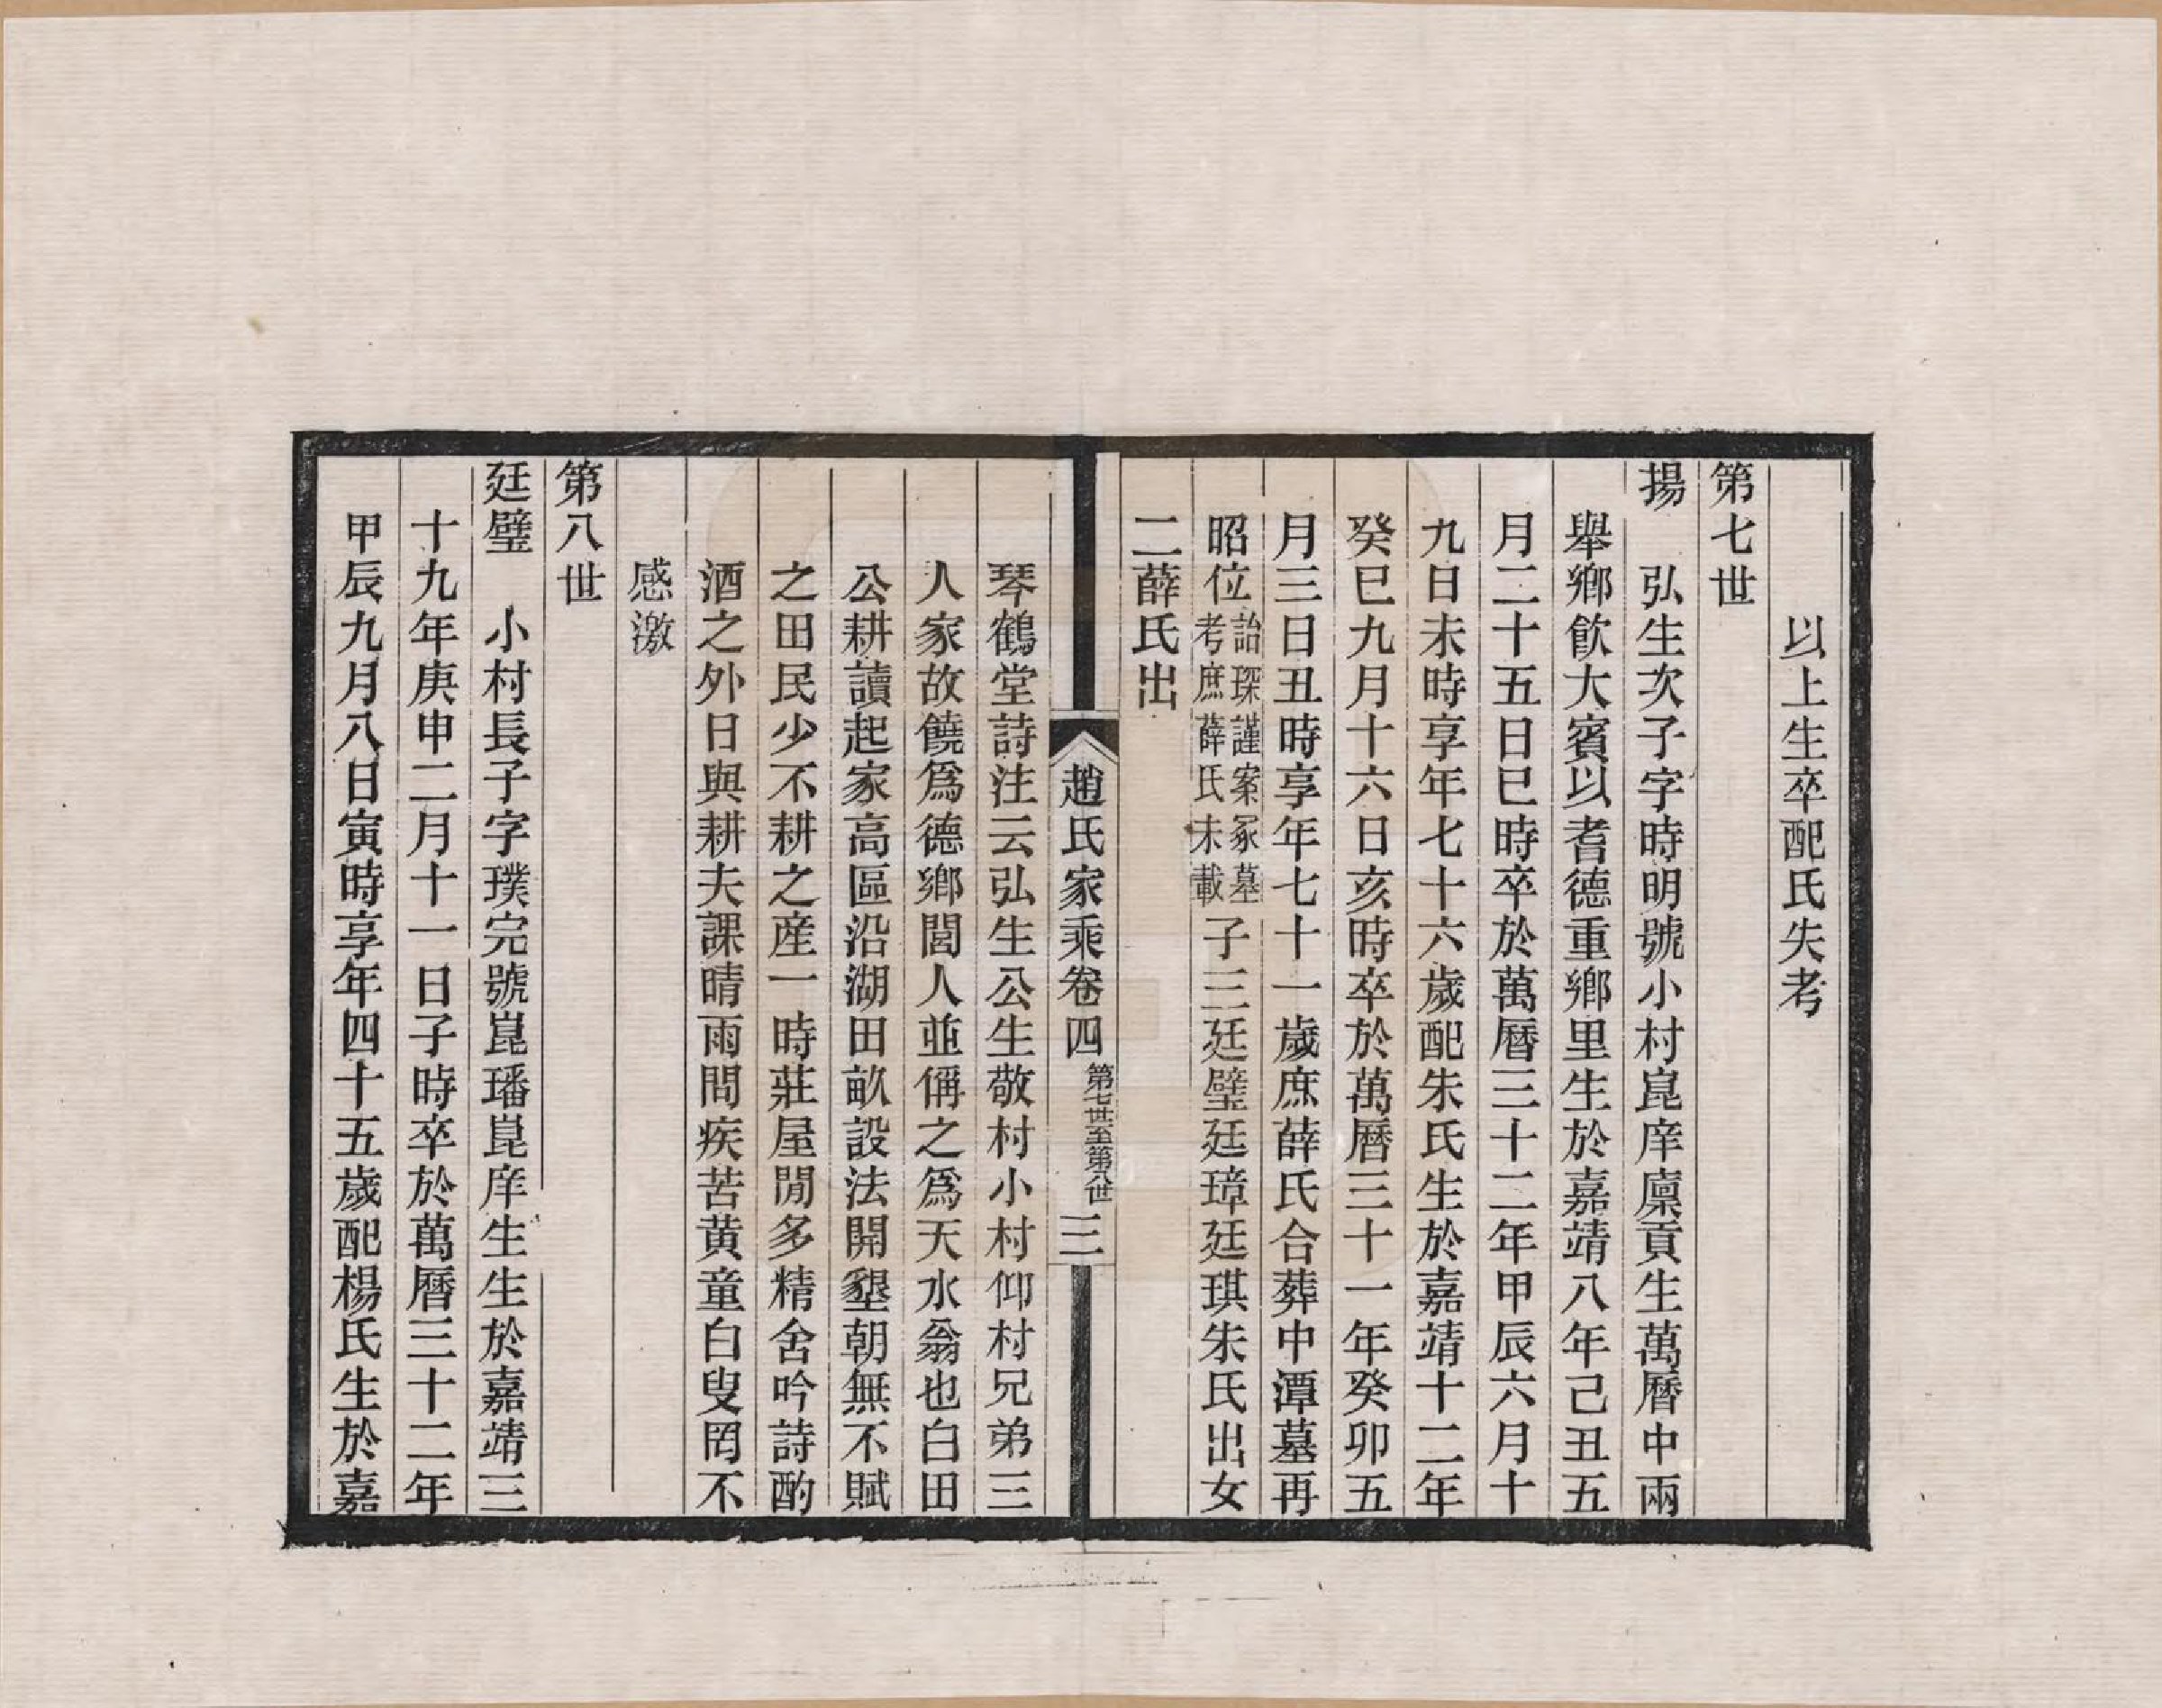 以上生卒配氏失考
第七世
揚　弘生次子字時明號小村崑庠廩貢生萬曆中兩
舉鄉飲大賓以耆德重鄉里生於嘉靖八年己丑五
月二十五日巳時卒於萬曆三十二年甲辰六月十
九日未時享年七十六歲配朱氏生於嘉靖十二年
癸巳九月十六日亥時卒於萬曆三十一年癸卯五
月三日丑時享年七十一歲庶薛氏合葬中潭墓再
昭位詒琛謹案冢墓考庶薛氏未載子三廷璧廷璋廷琪朱氏出女
二薛氏出
趙氏家乘卷四　第七世至第八世　三
琴鶴堂詩注云弘生公生敬村小村仰村兄弟三
人家故饒爲德鄉閭人並偁之爲天水翁也白田
公耕讀起家高區沿湖田畝設法開墾朝無不賦
之田民少不耕之產一時莊屋閒多精舍吟詩酌
酒之外日與耕夫課晴雨問疾苦黃童白叟罔不
感激
第八世
廷璧　小村長子字璞完號崑璠崑庠生生於嘉靖三
十九年庚申二月十一日子時卒於萬曆三十二年
甲辰九月八日寅時享年四十五歲配楊氏生於嘉